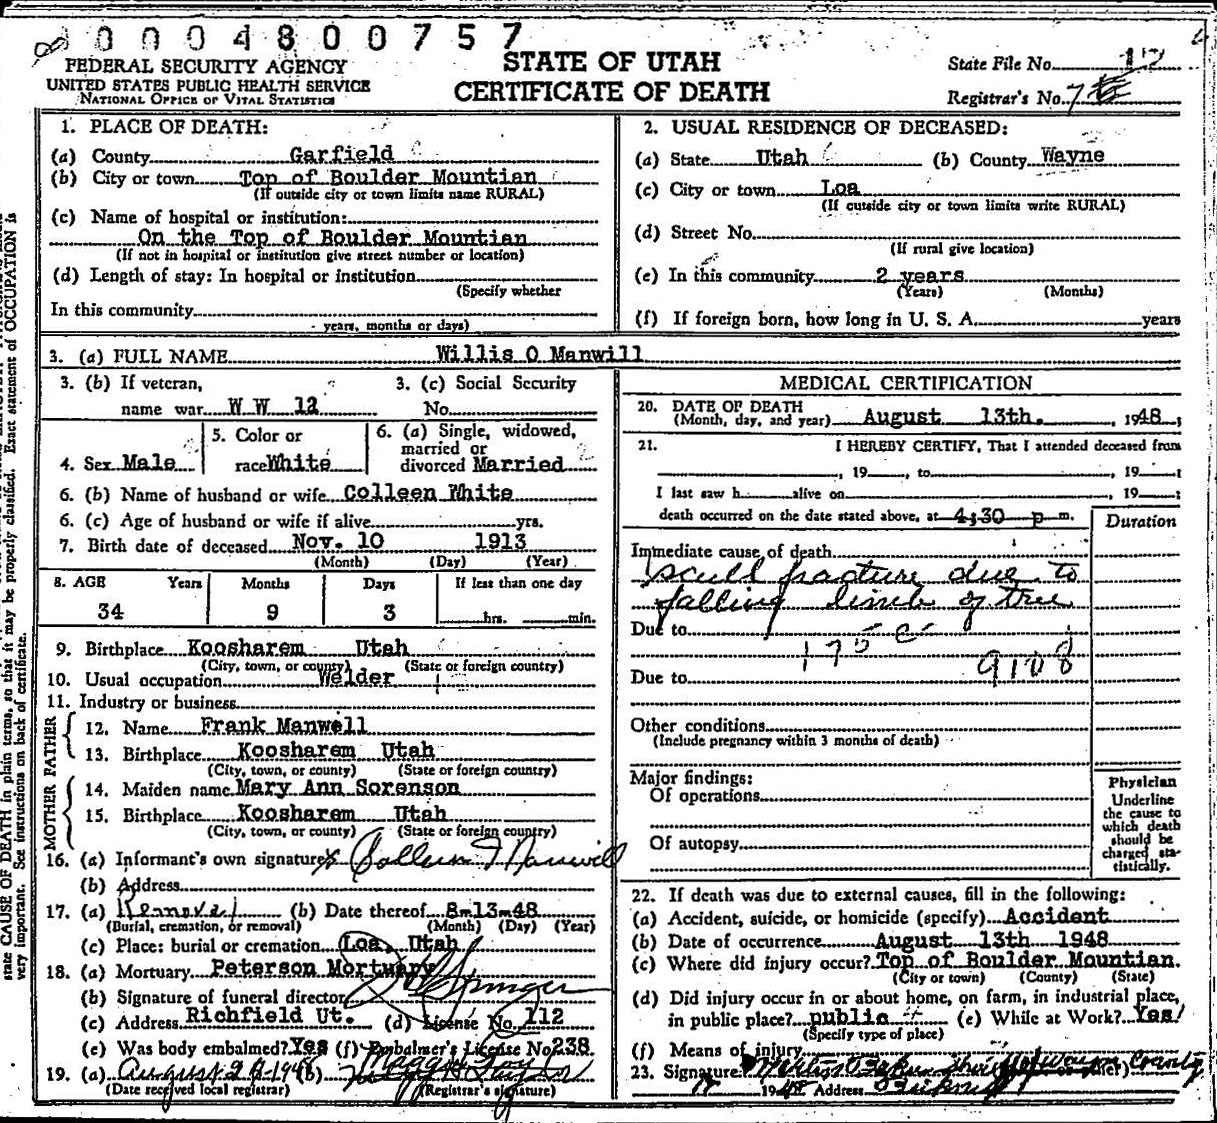 0004800757
FEDERAL SECURITY AGENCY
UNITED STATES PUBLIC HEALTH SERVICE
NATIONAL OFFICE OF VITAL STATISTICS
STATE OF UTAH
CERTIFICATE OF DEATH
State File No.
Registrar's No. 7
1. PLACE OF DEATH:
(a) County Garfield
(b) City or town Top of Boulder Mountian
(If outside city or town limits name RURAL)
(c) Name of hospital or institution:
On the Top of Boulder Mountian
(If not in hospital or institution give street number or location)
(d) Length of stay: In hospital or institution
(Specify whether
In this community
years, months or days)
2. USUAL RESIDENCE OF DECEASED:
(a) State Utah (b) County Wayne
(c) City or town Loa
(If outside city or town limits write RURAL)
(d) Street No.
(If rural give location)
(e) In this community 2 years
(Years) (Months)
(f) If foreign born, how long in U. S. A. years
3. (a) FULL NAME Willis O Manwill
3. (b) If veteran,
name war W W 12
3. (c) Social Security
No.
4. Sex Male
5. Color or
race White
6. (a) Single, widowed,
married or
divorced Married
6. (b) Name of husband or wife Colleen White
6. (c) Age of husband or wife if alive yrs.
7. Birth date of deceased Nov. 10 1913
(Month) (Day) (Year)
8. AGE Years Months Days If less than one day
34 9 3 hrs. min.
9. Birthplace Koosharem Utah
(City, town, or county) (State or foreign country)
10. Usual occupation Welder
11. Industry or business
FATHER
12. Name Frank Manwell
13. Birthplace Koosharem Utah
(City, town, or county) (State or foreign country)
MOTHER
14. Maiden name Mary Ann Sorenson
15. Birthplace Koosharem Utah
(City, town, or county) (State or foreign country)
16. (a) Informant's own signature x Colleen Manwill
(b) Address
17. (a) Removal (b) Date thereof 8-13-48
(Burial, cremation, or removal) (Month) (Day) (Year)
(c) Place: burial or cremation Loa, Utah
18. (a) Mortuary Peterson Mortuary
(b) Signature of funeral director Springer
(c) Address Richfield Ut. (d) License No. 112
(e) Was body embalmed? Yes (f) Embalmer's License No. 238
19. (a) August (b) Taylor
(Date received local registrar) (Registrar's signature)
MEDICAL CERTIFICATION
20. DATE OF DEATH
(Month, day, and year) August 13th. , 1948;
21. I HEREBY CERTIFY, That I attended deceased from
, 19 , to , 19 ;
I last saw h alive on , 19 ;
death occurred on the date stated above, at 4:30 p m.
Duration
Immediate cause of death
scull fracture due to
falling limb of tree
Due to
175 c
9108
Due to
Other conditions
(Include pregnancy within 3 months of death)
Major findings:
Of operations
Of autopsy
Physician
Underline
the cause to
which death
should be
charged sta-
tistically.
22. If death was due to external causes, fill in the following:
(a) Accident, suicide, or homicide (specify) Accident
(b) Date of occurrence August 13th 1948
(c) Where did injury occur? Top of Boulder Mountian.
(City or town) (County) (State)
(d) Did injury occur in or about home, on farm, in industrial place,
in public place? public (e) While at Work? Yes
(Specify type of place)
(f) Means of injury
23. Signature Sheriff of Wayne County
1948 Address
state CAUSE OF DEATH in plain terms, so that it may be properly classified. Exact statement of OCCUPATION is
very important. See instructions on back of certificate.